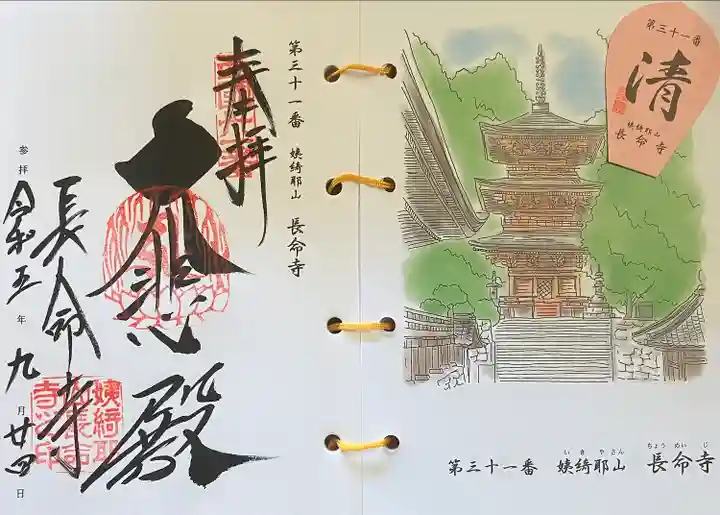 第三十一番 姨綺耶山 長命寺
奉拝
大悲殿
長命寺
参拝 令和五年九月廿四日
姨綺耶
山長命
寺之印
第三十一番
清
姨綺耶山
長命寺
いきやさん ちょうめいじ
第三十一番 姨綺耶山 長命寺